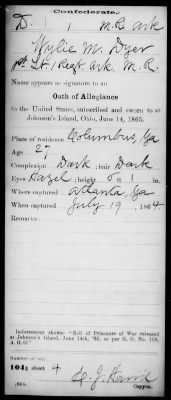 Confederate.
D. 1 M.R. Ark
Wylie M. Dyer
1st Lt, 1 Regt Ark. M.R.
Name appears as signature to an
Oath of Allegiance
to the United States, subscribed and sworn to at
Johnson's Island, Ohio, June 14, 1865.
Place of residence Columbus, Ga
Age 27
Complexion Dark; hair Dark
Eyes Hazel; height 6 ft 1 in.
Where captured Atlanta, Ga
When captured July 19, 1864
Remarks:
Indorsement shows: "Roll of Prisoners of War released
at Johnson's Island, June 14th, '65, as per G. O. No. 109,
A. G. O."
Number of roll:
104; sheet 4
(665) Copyist.